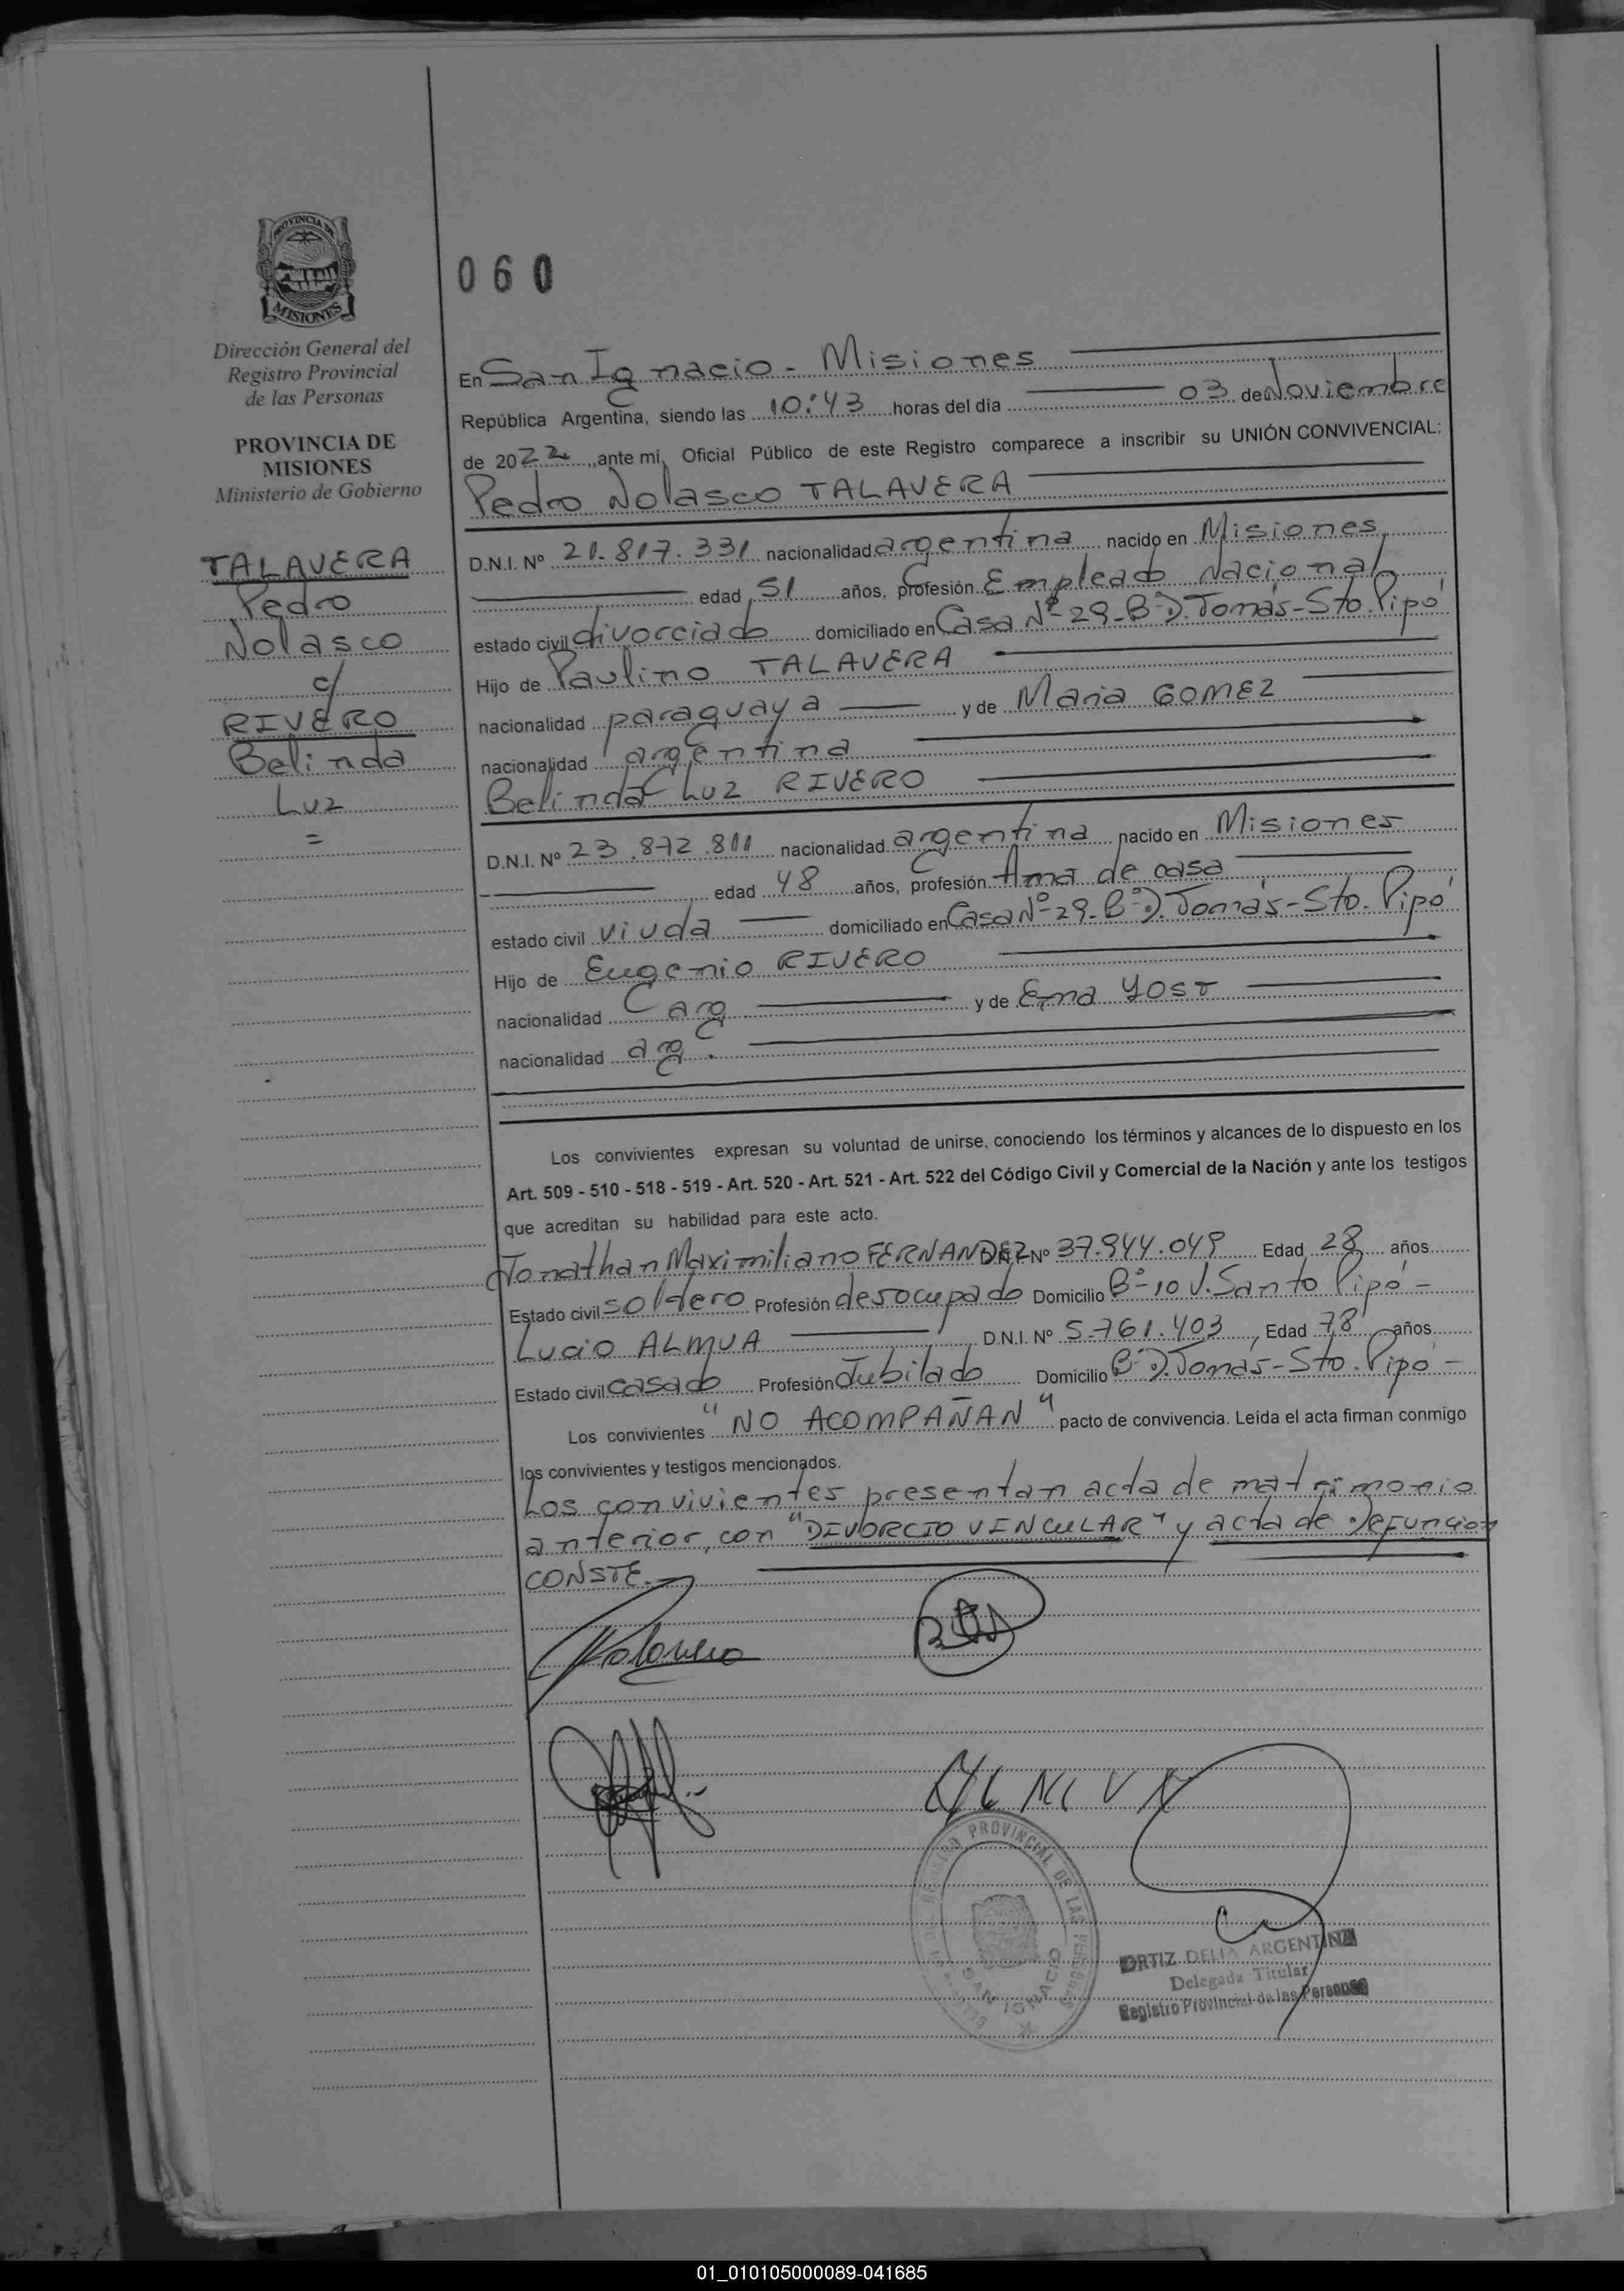 PROVINCIA DE
MISIONES
Dirección General del
Registro Provincial
de las Personas
PROVINCIA DE
MISIONES
Ministerio de Gobierno
TALAVERA
Pedro
Nolasco
c/
RIVERO
Belinda
Luz
=
060
En San Ignacio - Misiones
República Argentina, siendo las 10:43 horas del día 03 de Noviembre
de 2022, ante mí, Oficial Público de este Registro comparece a inscribir su UNIÓN CONVIVENCIAL:
Pedro Nolasco TALAVERA
D.N.I. Nº 21.817.331 nacionalidad argentina nacido en Misiones
edad 51 años, profesión Empleado Nacional
estado civil divorciado domiciliado en Casa Nº 29-Bº D. Tomás-Sto. Pipó
Hijo de Paulino TALAVERA
nacionalidad paraguaya y de Maria GOMEZ
nacionalidad argentina
Belinda Luz RIVERO
D.N.I. Nº 23.872.811 nacionalidad argentina nacido en Misiones
edad 48 años, profesión Ama de casa
estado civil viuda domiciliado en Casa Nº 29-Bº D. Tomás-Sto. Pipó
Hijo de Eugenio RIVERO
nacionalidad arg y de Ema YOST
nacionalidad arg.
Los convivientes expresan su voluntad de unirse, conociendo los términos y alcances de lo dispuesto en los
Art. 509 - 510 - 518 - 519 - Art. 520 - Art. 521 - Art. 522 del Código Civil y Comercial de la Nación y ante los testigos
que acreditan su habilidad para este acto.
Jonathan Maximiliano FERNANDEZ D.N.I. Nº 37.944.049 Edad 28 años
Estado civil soltero Profesión desocupado Domicilio Bº 10 V. Santo Pipó -
Lucio ALMUA D.N.I. Nº 5.761.403, Edad 78 años
Estado civil casado Profesión Jubilado Domicilio Bº D. Tomás-Sto. Pipó -
Los convivientes "NO ACOMPAÑAN" pacto de convivencia. Leída el acta firman conmigo
los convivientes y testigos mencionados.
Los convivientes presentan acta de matrimonio
anterior, con "DIVORCIO VINCULAR" y acta de Defuncion
CONSTE.-
REGISTRO PROVINCIAL DE LAS PERSONAS
SAN IGNACIO
ORTIZ DELIA ARGENTINA
Delegada Titular
Registro Provincial de las Personas
01_010105000089-041685